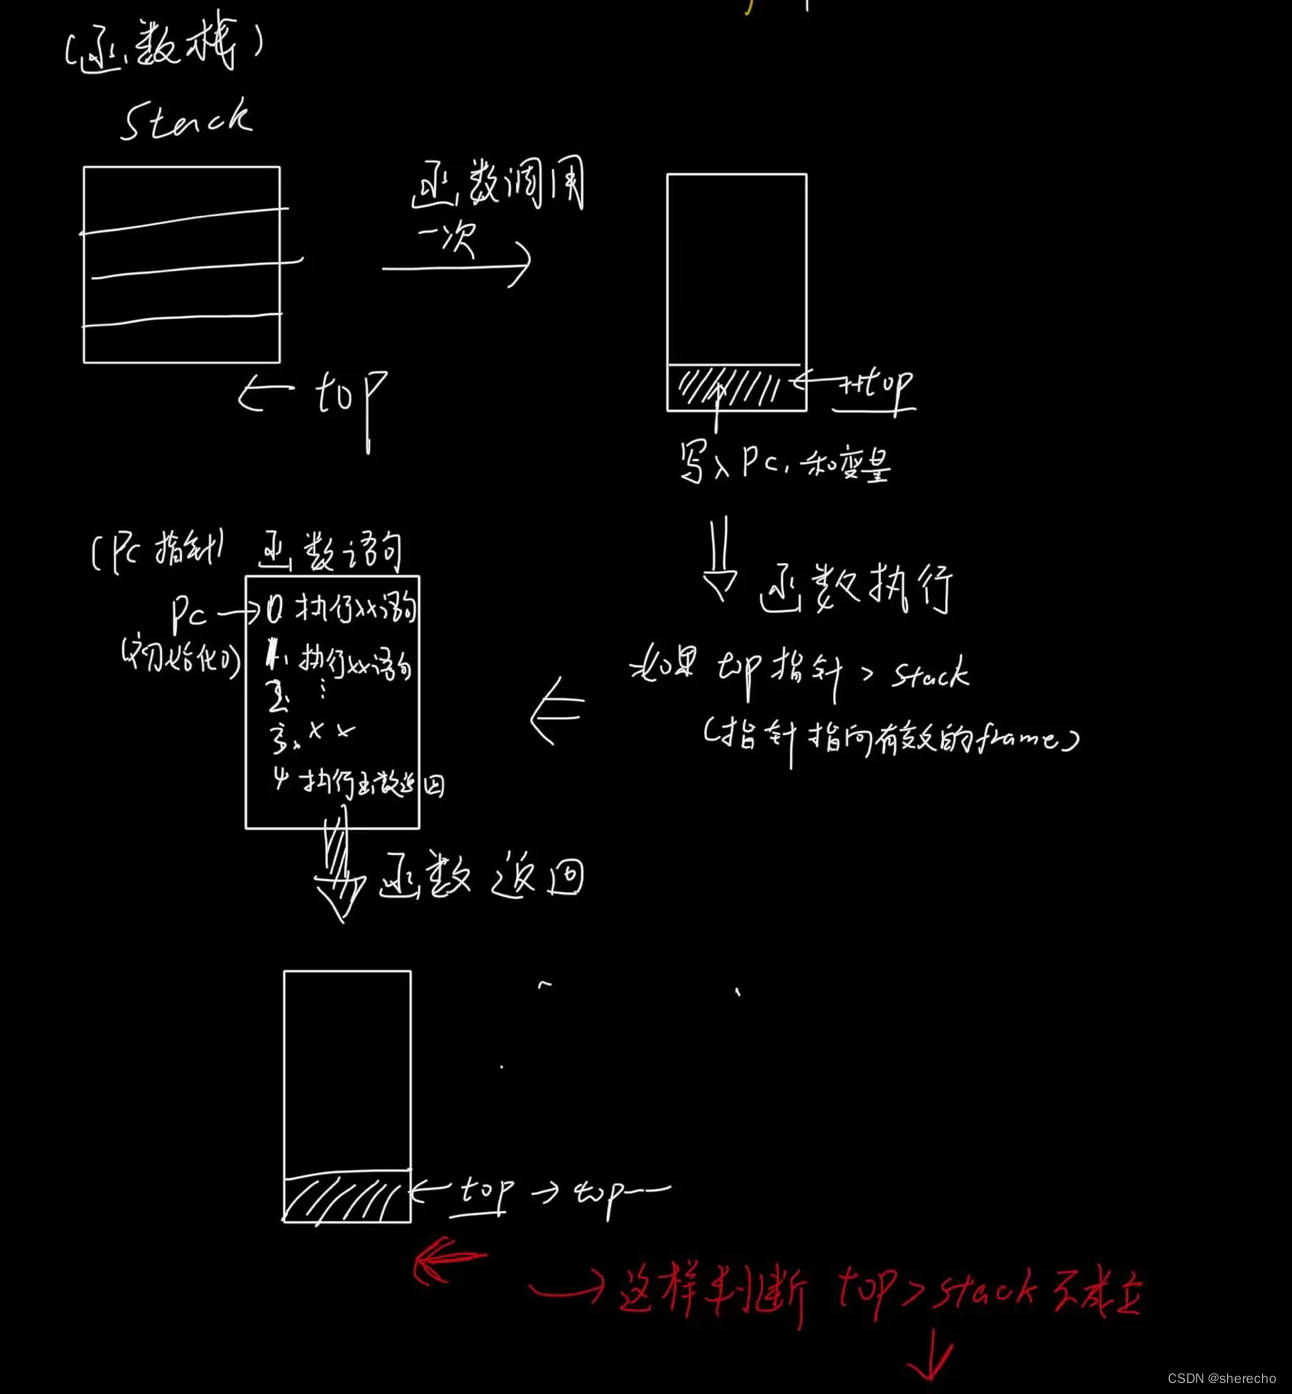 (函数栈)
Stack
函数调用
一次
← top
←++top
写入PC,和变量
函数执行
如果 top指针 > stack
(指针指向有效的frame)
(PC指针) 函数语句
PC → 0. 执行xx语句
(初始化0)
1. 执行xx语句
2. ⋮
3. x x
4 执行函数返回
函数返回
← top → top--
→ 这样判断 top > stack 不成立
CSDN @sherecho